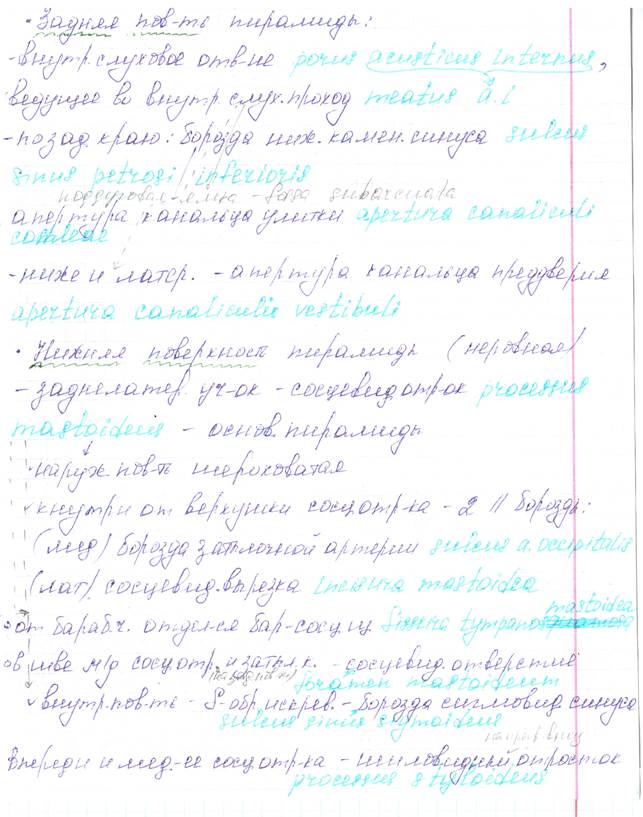 · Задняя пов-ть пирамиды:
- внутр. слуховое отв-ие porus acusticus internus,
ведущее во внутр. слух. проход meatus a. i
- по зад. краю: борозда ниж. камен. синуса sulcus
sinus petrosi inferioris
поддуговая ямка - fossa subarcuata
апертура канальца улитки apertura canaliculi
cochleae
- ниже и латер. - апертура канальца преддверия
apertura canaliculis vestibuli
· Нижняя поверхность пирамиды (неровная)
- заднелатер. уч-ок - сосцевид. отр-ок processus
mastoideus - основ. пирамиды
· наруж. пов-ть шероховатая
✓ кнутри от верхушки сосц. отр-ка - 2 || борозды:
(мед) борозда затылочной артерии sulcus a. occipitalis
(лат) сосцевид. вырезка incisura mastoidea
от барабч. отдел-ся бар-сосц. щ. fissura tympano mastoidea
в шве м/д сосц. отр. и затыл. к. - сосцевид. отверстие
foramen mastoideum
✓ внутр. пов-ть - S-обр. искрев. - борозда сигмовид. синуса
sulcus sinus sigmoideus
направ. вниз
Впереди и мед-ее сосц. отр-ка - шиловидный отросток
processus styloideus